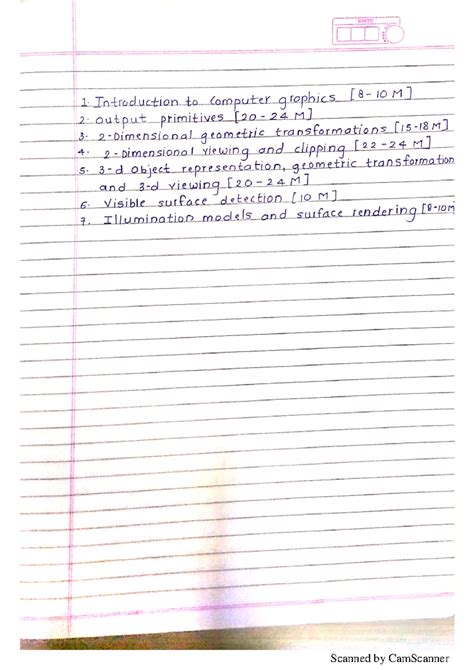 DATE
1. Introduction to computer graphics [8-10 M]
2. output primitives [20-24 M]
3. 2-Dimensional geometric transformations [15-18 M]
4. 2-Dimensional viewing and clipping [22-24 M]
5. 3-d object representation, geometric transformation
and 3-d viewing [20-24 M]
6. Visible surface detection [10 M]
7. Illumination models and surface rendering [8-10M
Scanned by CamScanner